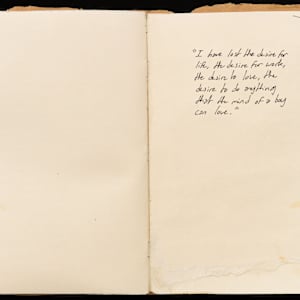 "I have lost the desire for
life, the desire for work,
the desire to love, the
desire to do anything
that the mind of a boy
can love."